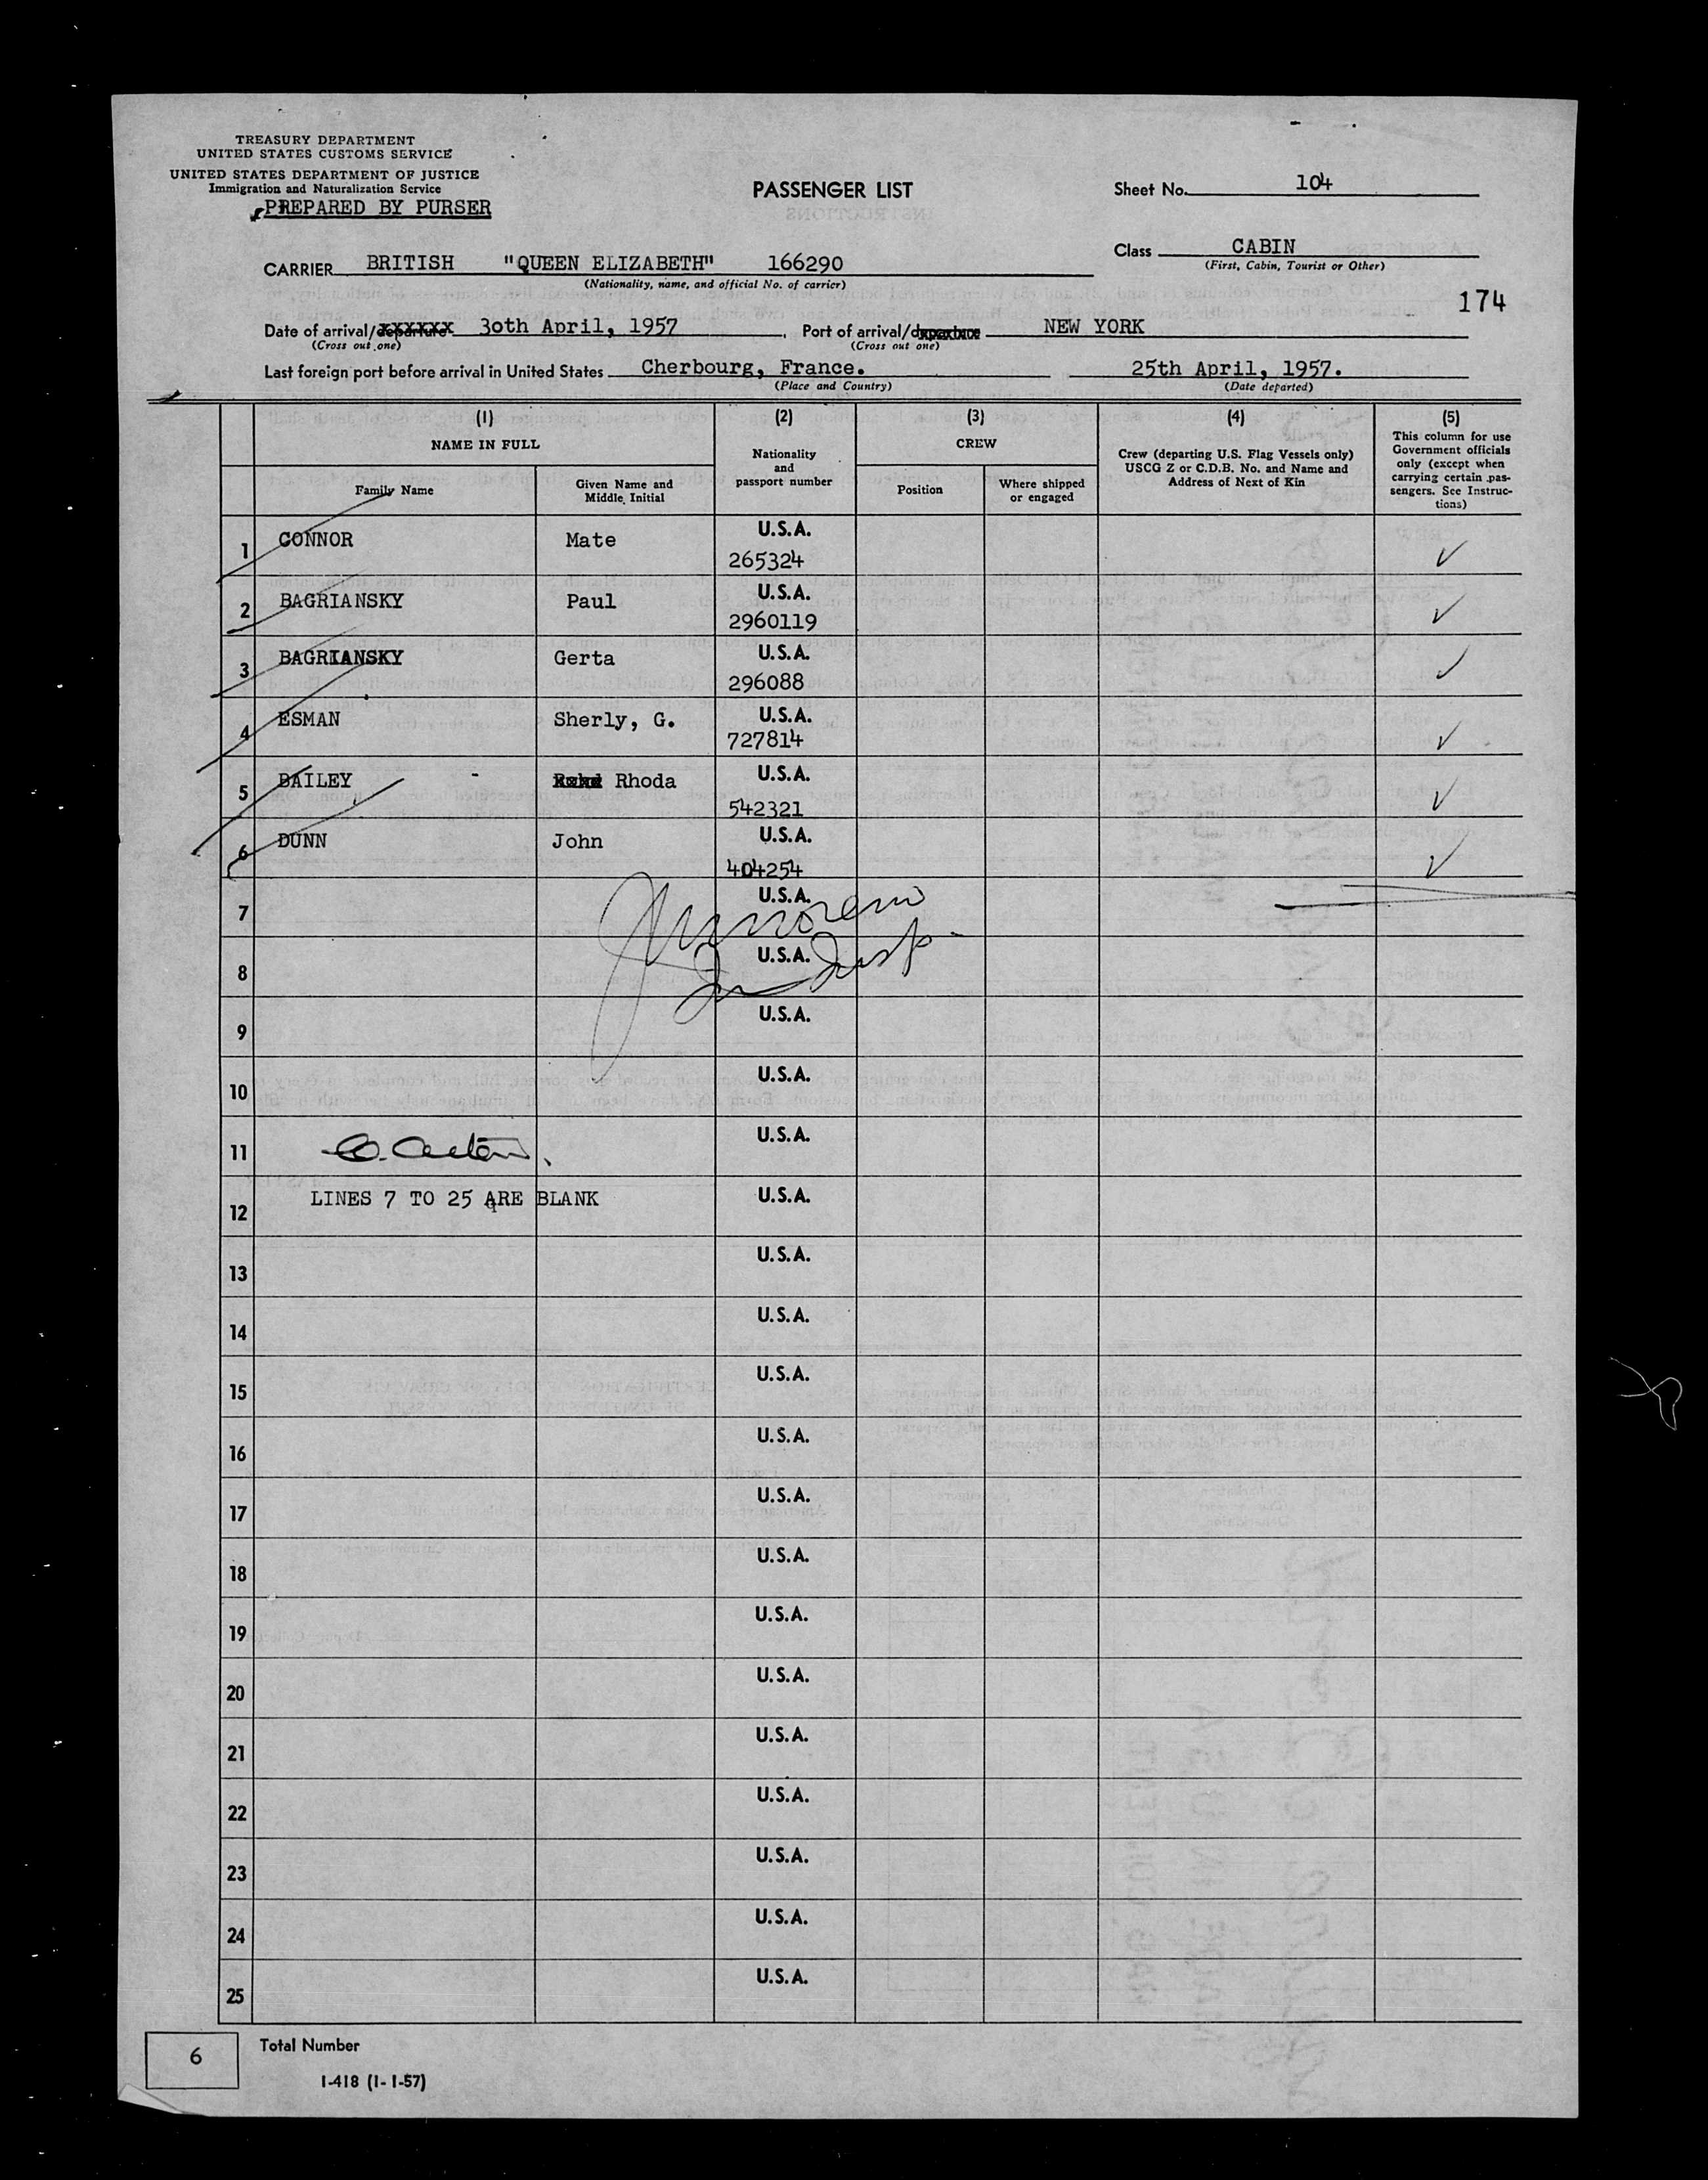 TREASURY DEPARTMENT
UNITED STATES CUSTOMS SERVICE
UNITED STATES DEPARTMENT OF JUSTICE
Immigration and Naturalization Service
PREPARED BY PURSER
PASSENGER LIST
Sheet No. 104
Class CABIN
(First, Cabin, Tourist or Other)
CARRIER BRITISH "QUEEN ELIZABETH" 166290
(Nationality, name, and official No. of carrier)
174
Date of arrival/departure 30th April, 1957 Port of arrival/departure NEW YORK
(Cross out one) (Cross out one)
Last foreign port before arrival in United States Cherbourg, France. 25th April, 1957.
(Place and Country) (Date departed)
(1) (2) (3) (4) (5)
NAME IN FULL
Family Name
Given Name and
Middle Initial
Nationality
and
passport number
CREW
Position
Where shipped
or engaged
Crew (departing U.S. Flag Vessels only)
USCG Z or C.D.B. No. and Name and
Address of Next of Kin
This column for use
Government officials
only (except when
carrying certain pas-
sengers. See Instruc-
tions)
1 CONNOR Mate U.S.A. 265324 ✓
2 BAGRIANSKY Paul U.S.A. 2960119 ✓
3 BAGRIANSKY Gerta U.S.A. 296088 ✓
4 ESMAN Sherly, G. U.S.A. 727814 ✓
5 BAILEY Rhoda U.S.A. 542321 ✓
6 DUNN John U.S.A. 404254 ✓
7 U.S.A.
8 U.S.A.
9 U.S.A.
10 U.S.A.
11 U.S.A.
12 LINES 7 TO 25 ARE BLANK U.S.A.
13 U.S.A.
14 U.S.A.
15 U.S.A.
16 U.S.A.
17 U.S.A.
18 U.S.A.
19 U.S.A.
20 U.S.A.
21 U.S.A.
22 U.S.A.
23 U.S.A.
24 U.S.A.
25 U.S.A.
6 Total Number
I-418 (1-1-57)